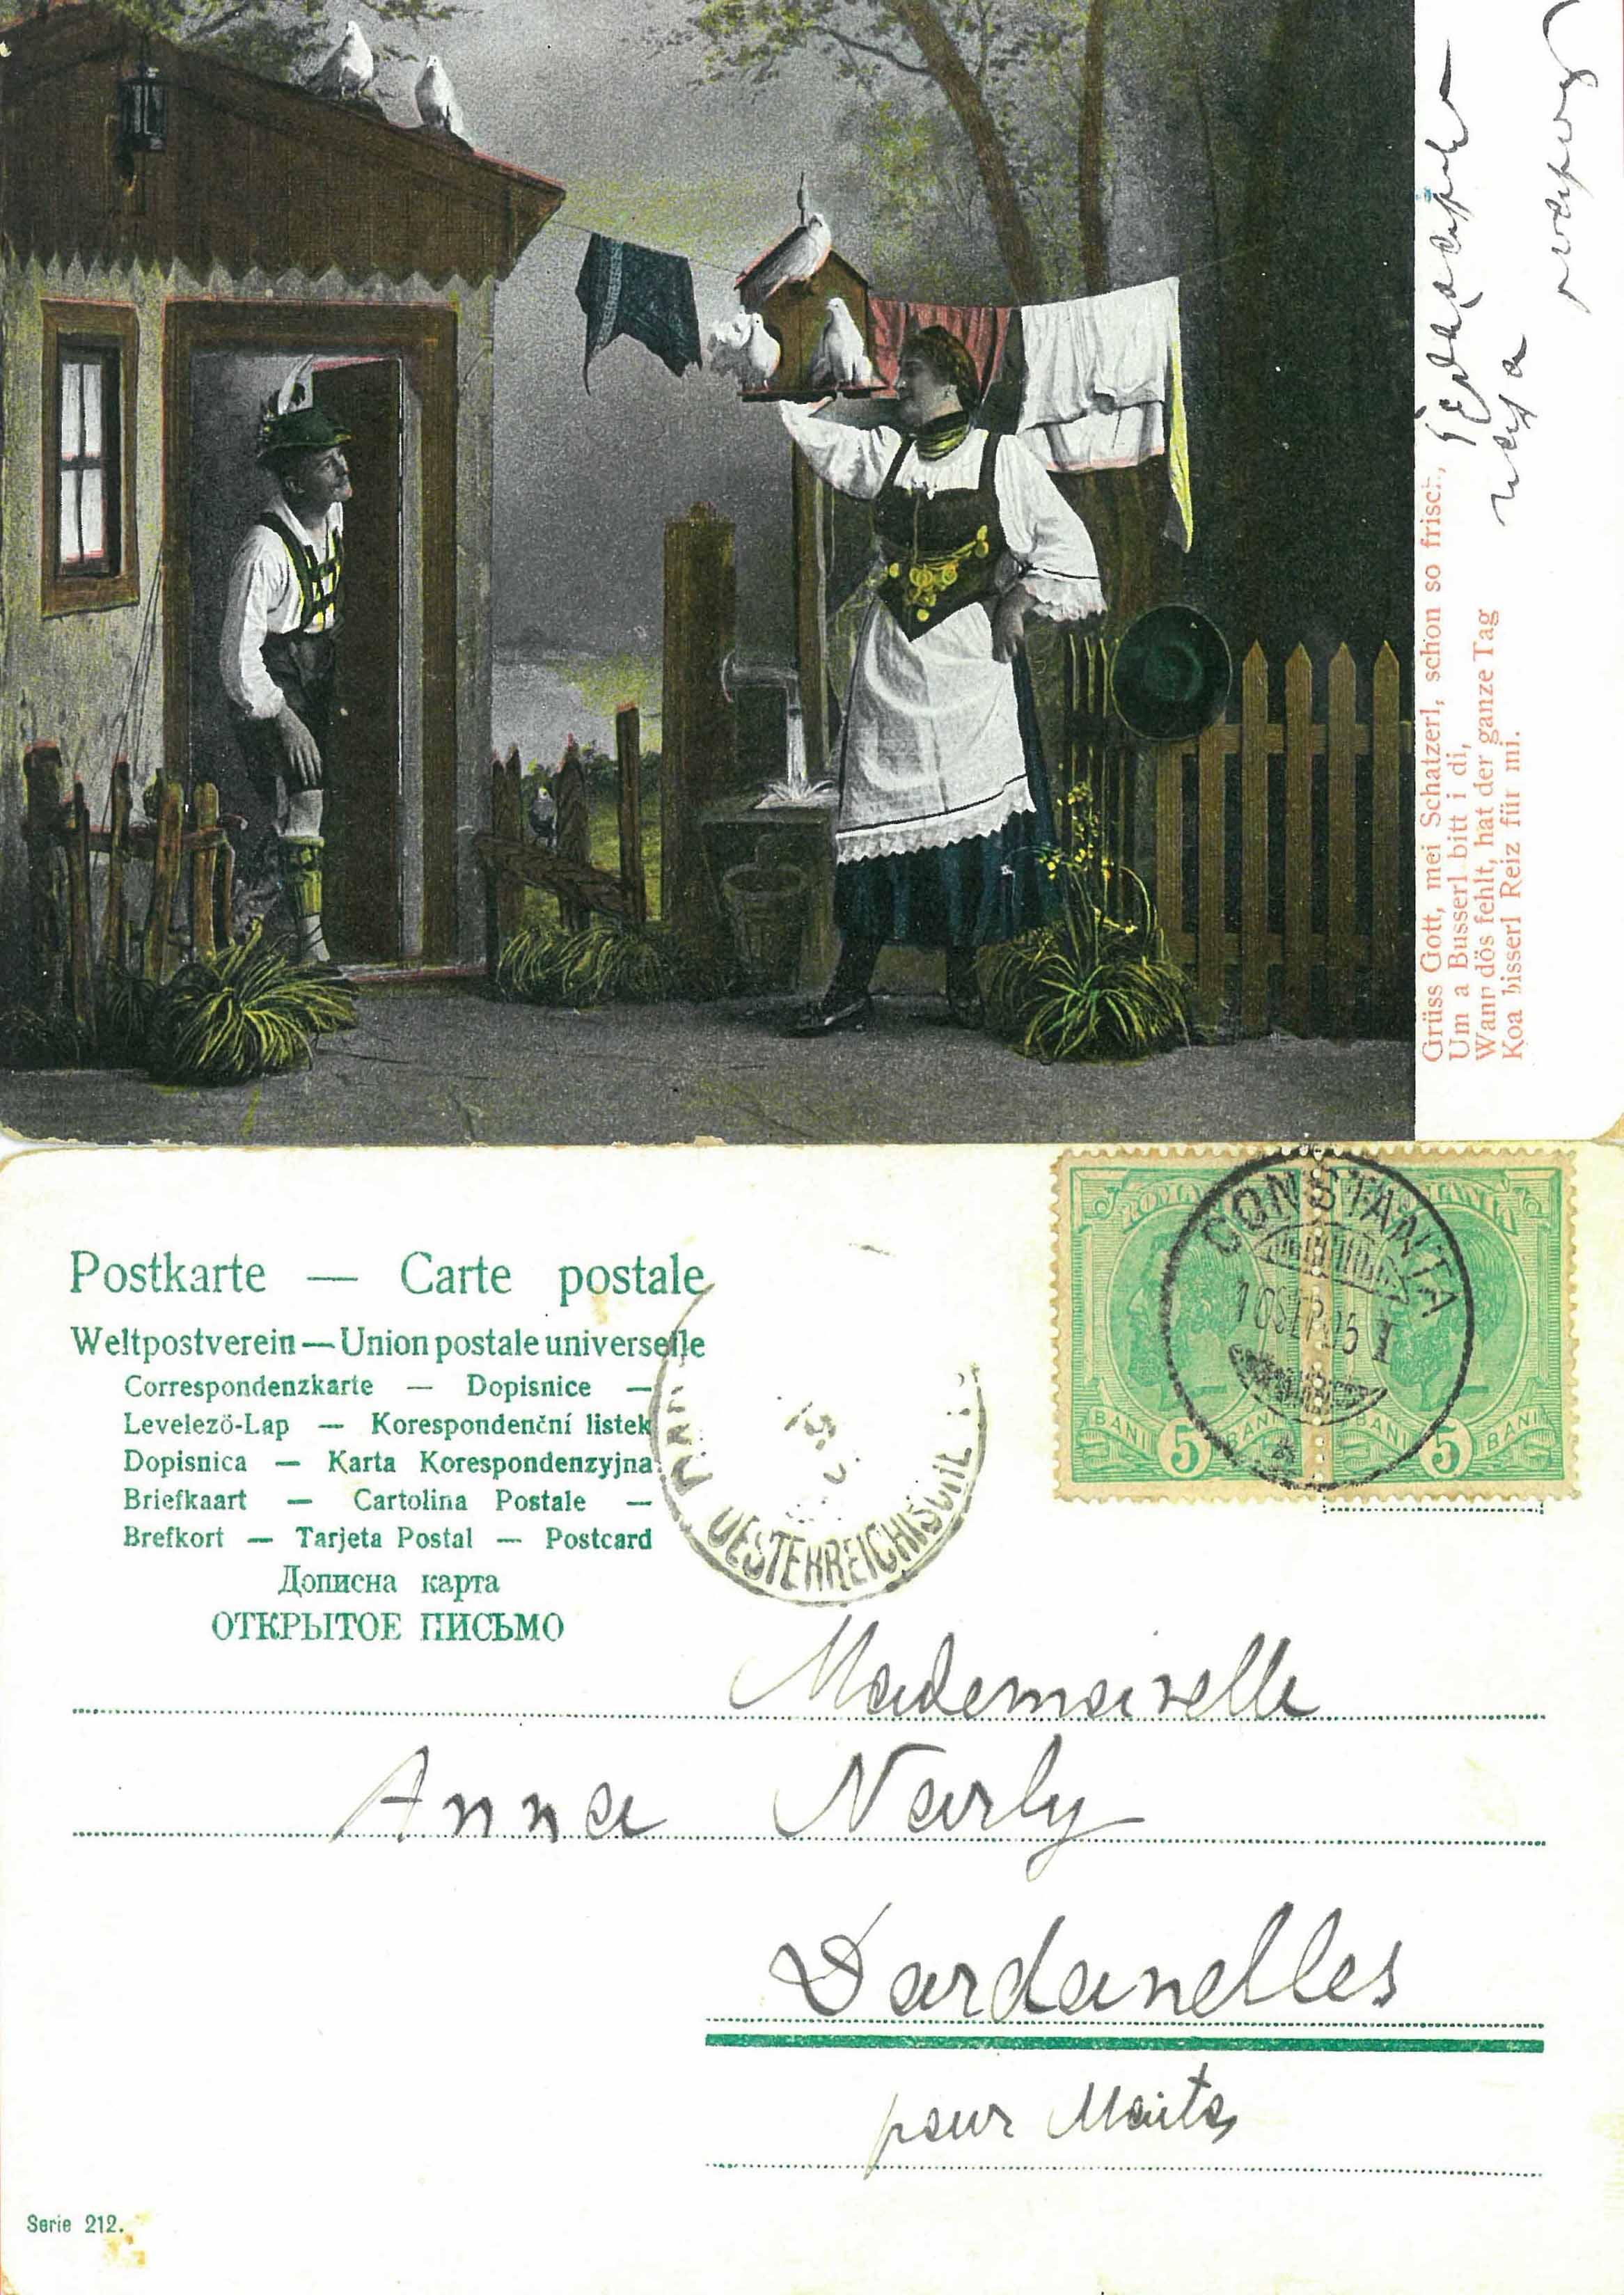 Grüss Gott, mei Schatzerl, schon so frisch,
Um a Busserl bitt i di,
Wann dös fehlt, hat der ganze Tag
Koa bisserl Reiz für mi.
Postkarte — Carte postale
Weltpostverein — Union postale universelle
Correspondenzkarte — Dopisnice —
Levelező-Lap — Korespondenční listek
Dopisnica — Karta Korespondenzyjna
Briefkaart — Cartolina Postale —
Brefkort — Tarjeta Postal — Postcard
Дописна карта
ОТКРЫТОЕ ПИСЬМО
CONSTANTA
10 SEP 05 1
BANI 5 BANI
BANI 5 BANI
OESTERREICHISCHE
Mademoiselle
Anna Narly
Dardanelles
pour
Serie 212.